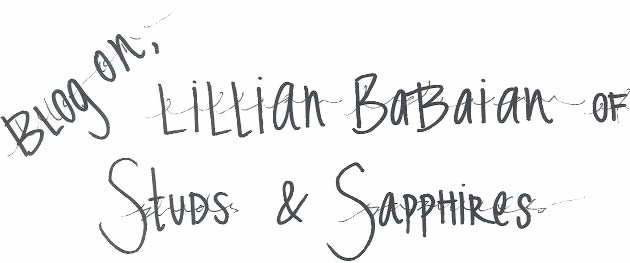 BLOG on,
LiLLian BaBaian OF
STUDS & SAPPHIRES.